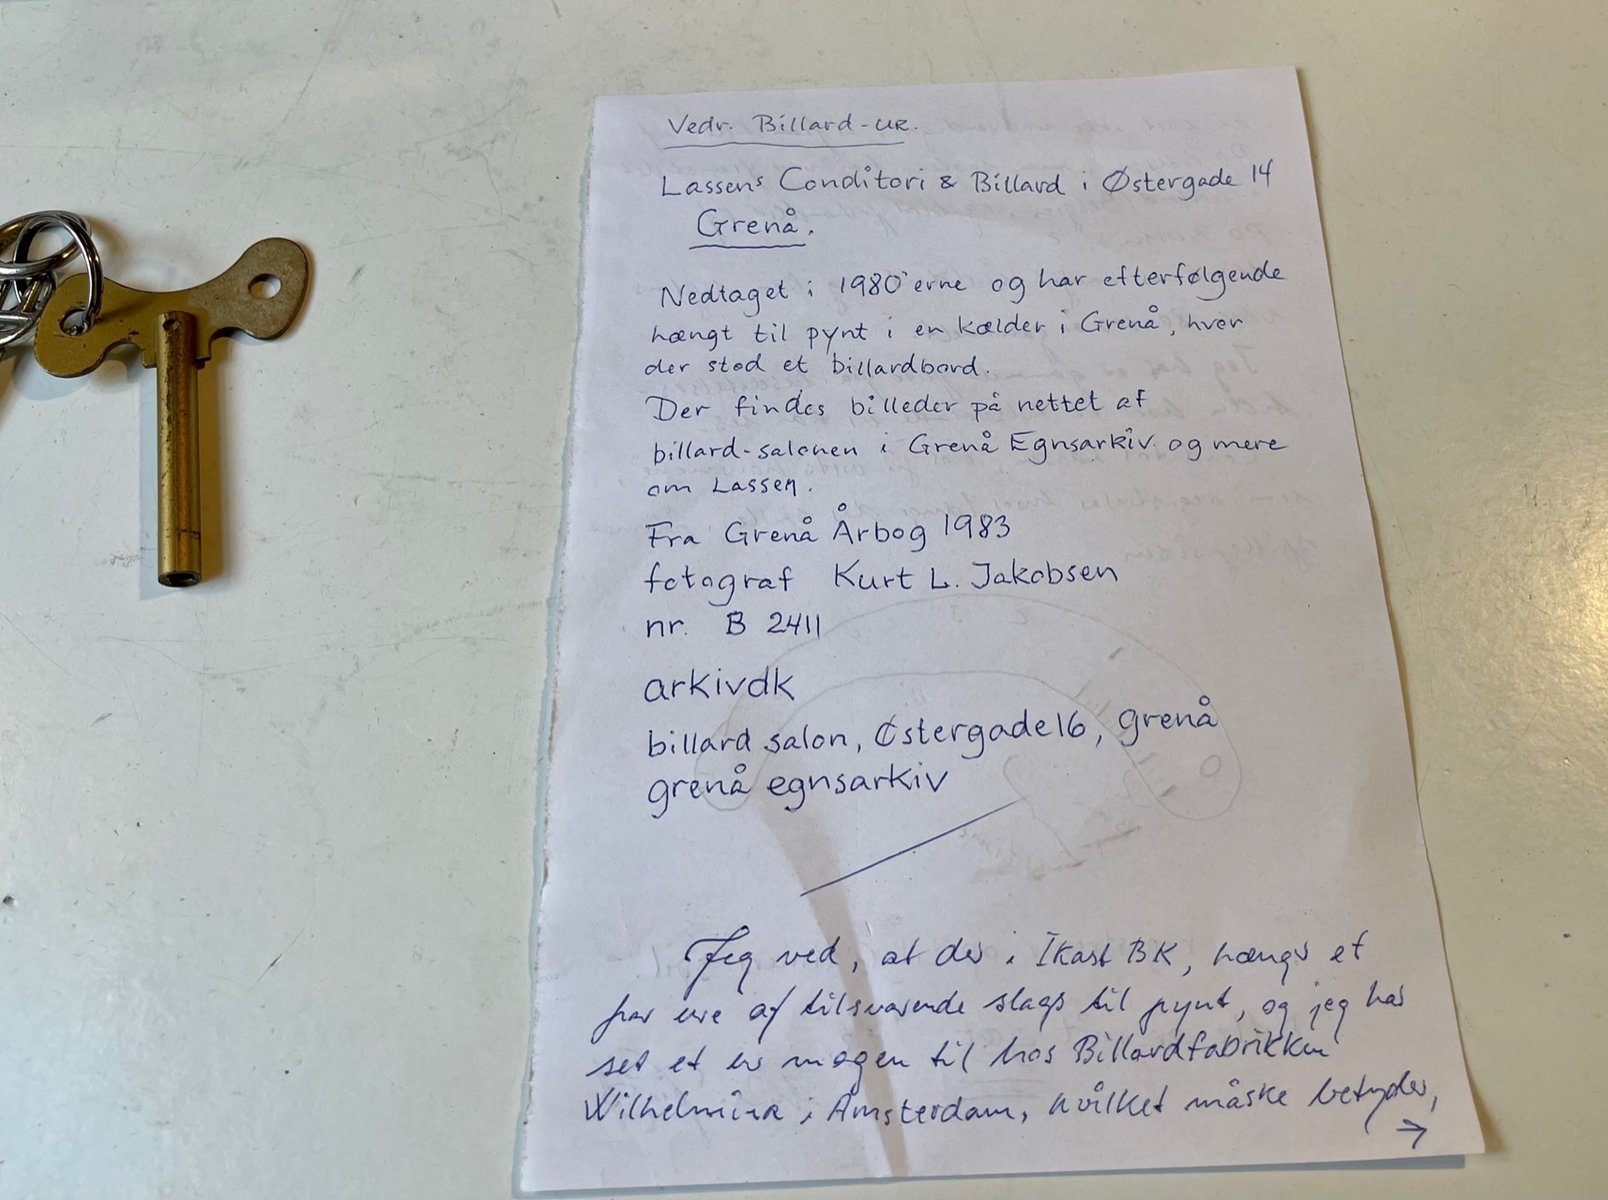 Vedr. Billard-UR.
Lassens Conditori & Billard i Østergade 14
Grenå.
Nedtaget i 1980'erne og har efterfølgende
hængt til pynt i en kælder i Grenå, hvor
der stod et billardbord.
Der findes billeder på nettet af
billard-salonen i Grenå Egnsarkiv og mere
om Lassen.
Fra Grenå Årbog 1983
fotograf Kurt L. Jakobsen
nr. B 2411
arkivdk
billard salon, Østergade 16, grenå
grenå egnsarkiv
Jeg ved, at der i Ikast BK, hænger et
par ure af tilsvarende slags til pynt, og jeg har
set et ur magen til hos Billardfabrikken
Wilhelmina i Amsterdam, hvilket måske betyder,
→